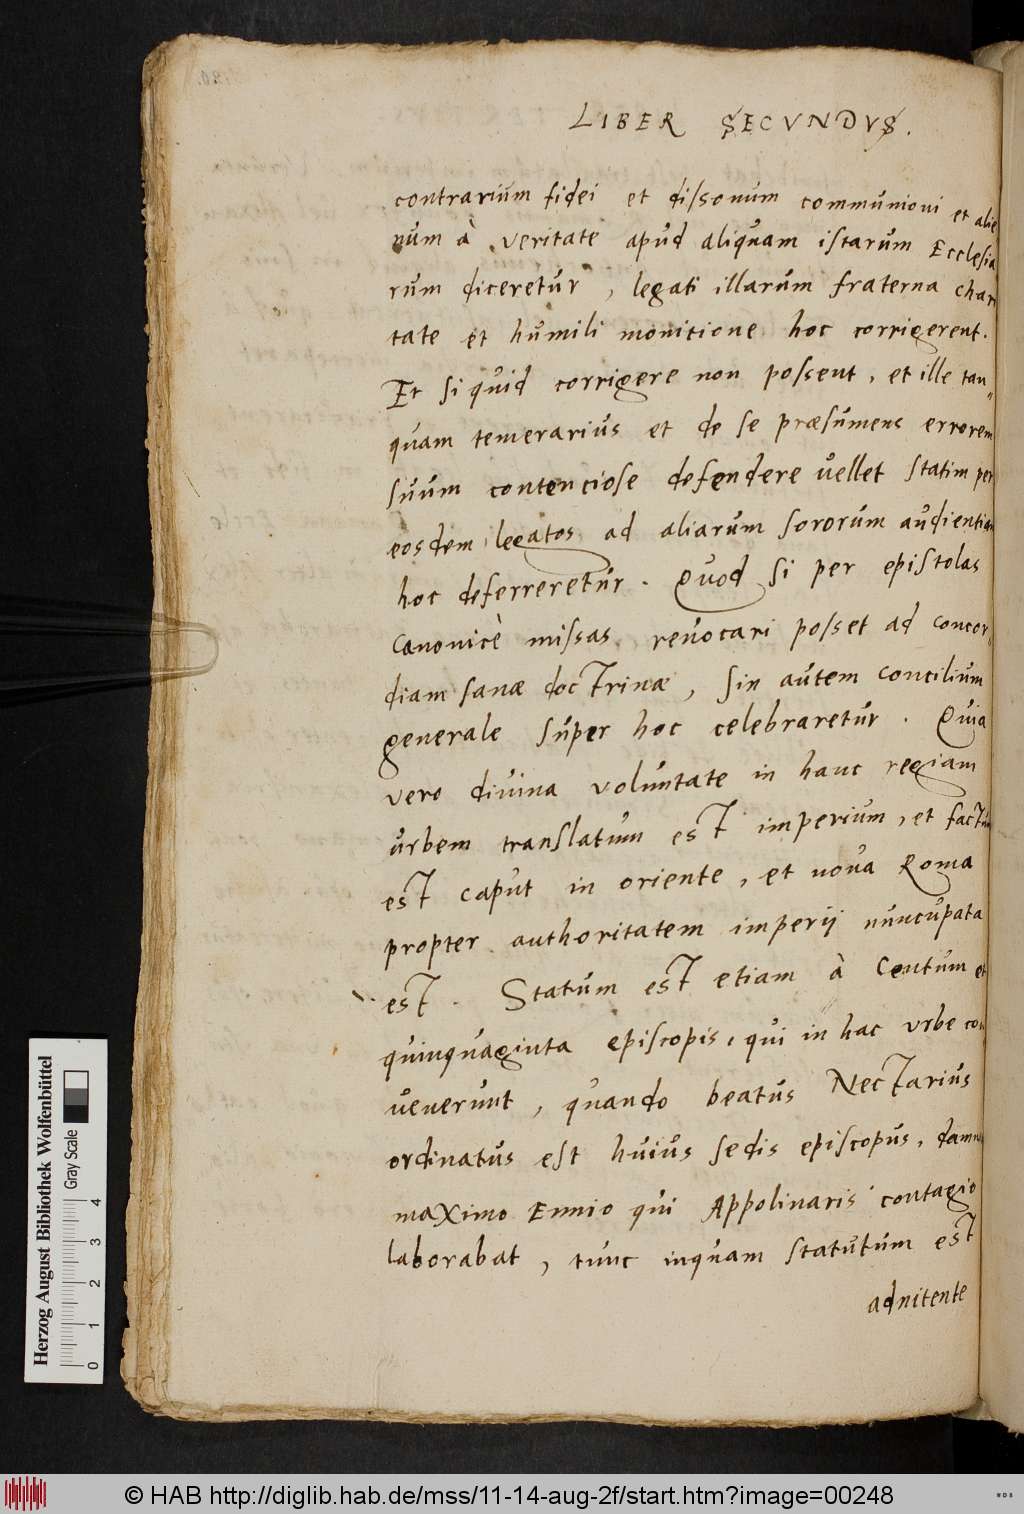 LIBER SECVNDVS.
contrarium fidei et dissonum communioni et alie
num à veritate apud aliquam istarum Ecclesia
rum diceretur, legati illarum fraterna chari
tate et humili monitione hoc corrigerent.
Et si quid corrigere non possent, et ille tan„
quam temerarius et de se præsumens errorem
suum contenciose defendere vellet statim per
eosdem legatos ad aliarum sororum audientiam
hoc deferreretur. Quod si per epistolas
canonicè missas, revocari posset ad concor„
diam sanæ doctrinæ, sin autem concilium
generale super hoc celebraretur. Quia
vero divina voluntate in hanc regiam
urbem translatum est imperium, et factum
est caput in oriente, et nova Roma
propter authoritatem imperij nuncupata
est. Statum est etiam à Centum et
quinquaginta episcopis, qui in hac urbe con
venerunt, quando beatus Nectarius
ordinatus est huius sedis episcopus, damn
maximo Ennio qui Appolinaris contagio
laborabat, tunc inquam statutum est
adnitente
Herzog August Bibliothek Wolfenbüttel
Gray Scale
0 1 2 3 4
© HAB http://diglib.hab.de/mss/11-14-aug-2f/start.htm?image=00248